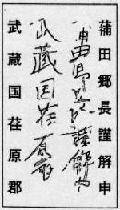 蒲田郷長謹解申
蒲田郷長謹解申
武蔵国荏原郡
武蔵国荏原郡